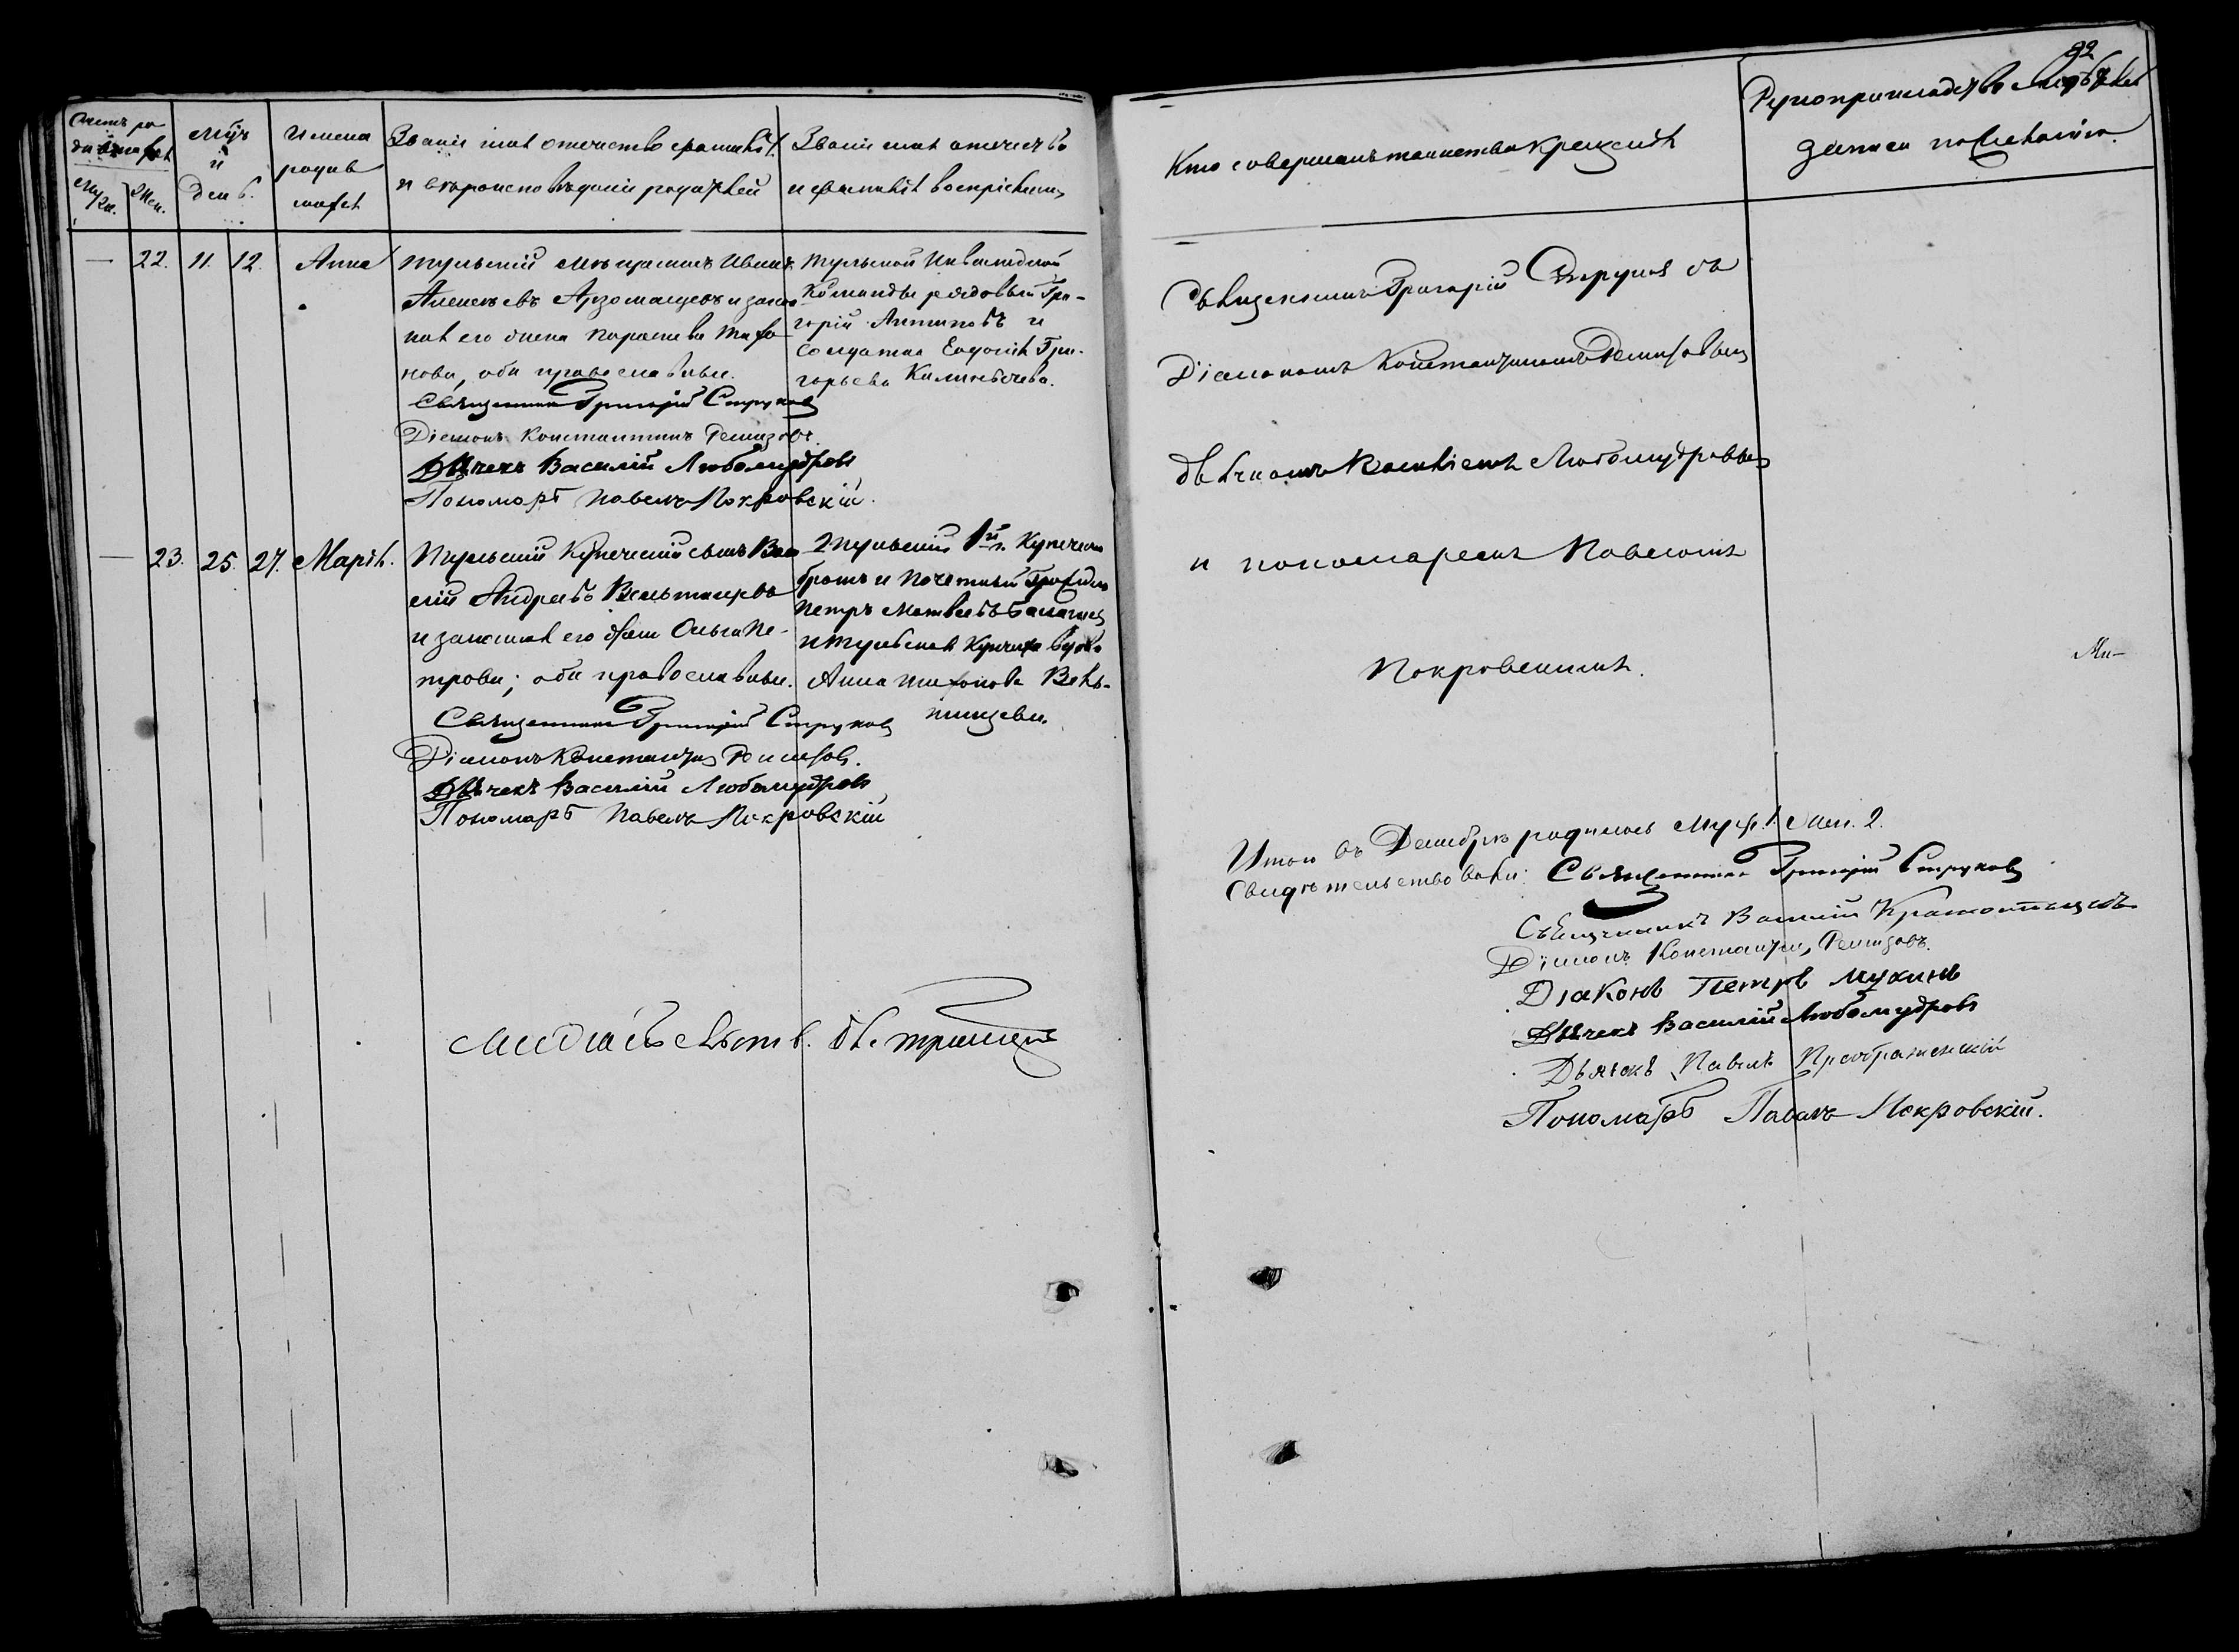 92
Счетъ ро
дившихся
Муж.
Жен.
Мѣс.
и
День.
Имена
родив
шихся
Званіе имя отчество фамилія
и вѣроисповѣданіе родителей
Званіе имя отчество
и фамилія воспріемник.
Кто совершалъ таинство крещенія
Рукоприкладство свидѣтелей
записи по желанію.
— 22. 11. 12. Анна
Тульскій мѣщанинъ Иванъ
Алексѣевъ Арзамасцевъ и закон
ная его жена Параскева Тихо
нова, оба православные.
Священникъ Григорій Струковъ
Діаконъ Константинъ Ремизовъ.
Дьячекъ Василій Любомудровъ
Пономарь Павелъ Покровскій.
Тульской Инвалидной
Команды рядовый Гри-
горій Антиповъ и
Солдатка Евдокія Гри-
горьева
Священникъ Григорій Струковъ съ
Діакономъ Константиномъ Ремизовымъ
дьячкомъ Василіемъ Любомудровымъ
и пономаремъ Павломъ
Покровскимъ.
— 23. 25. 27. Марія.
Тульскій Купеческій сынъ Васи
лій Андреевъ Вельтищевъ
и законная его жена Ольга Пе-
трова; оба православные.
Священникъ Григорій Струковъ
Діаконъ Константинъ Ремизовъ.
Дьячекъ Василій Любомудровъ
Пономарь Павелъ Покровскій
Тульскій 1й г. Купеческій
братъ и Почетный Гражданинъ
Петръ Матвеевъ
и Тульская Купчиха вдова
Анна Тихонова Вель-
тищева.
Итого въ Декабрѣ родилось Муж. 1. Жен. 2.
Свидѣтельствовали: Священникъ Григорій Струковъ
Священникъ Василій
Діаконъ Константинъ Ремизовъ.
Діаконъ Петръ Мукинъ
Дьячекъ Василій Любомудровъ
Дьячекъ Павелъ Преображенскій
Пономарь Павелъ Покровскій.